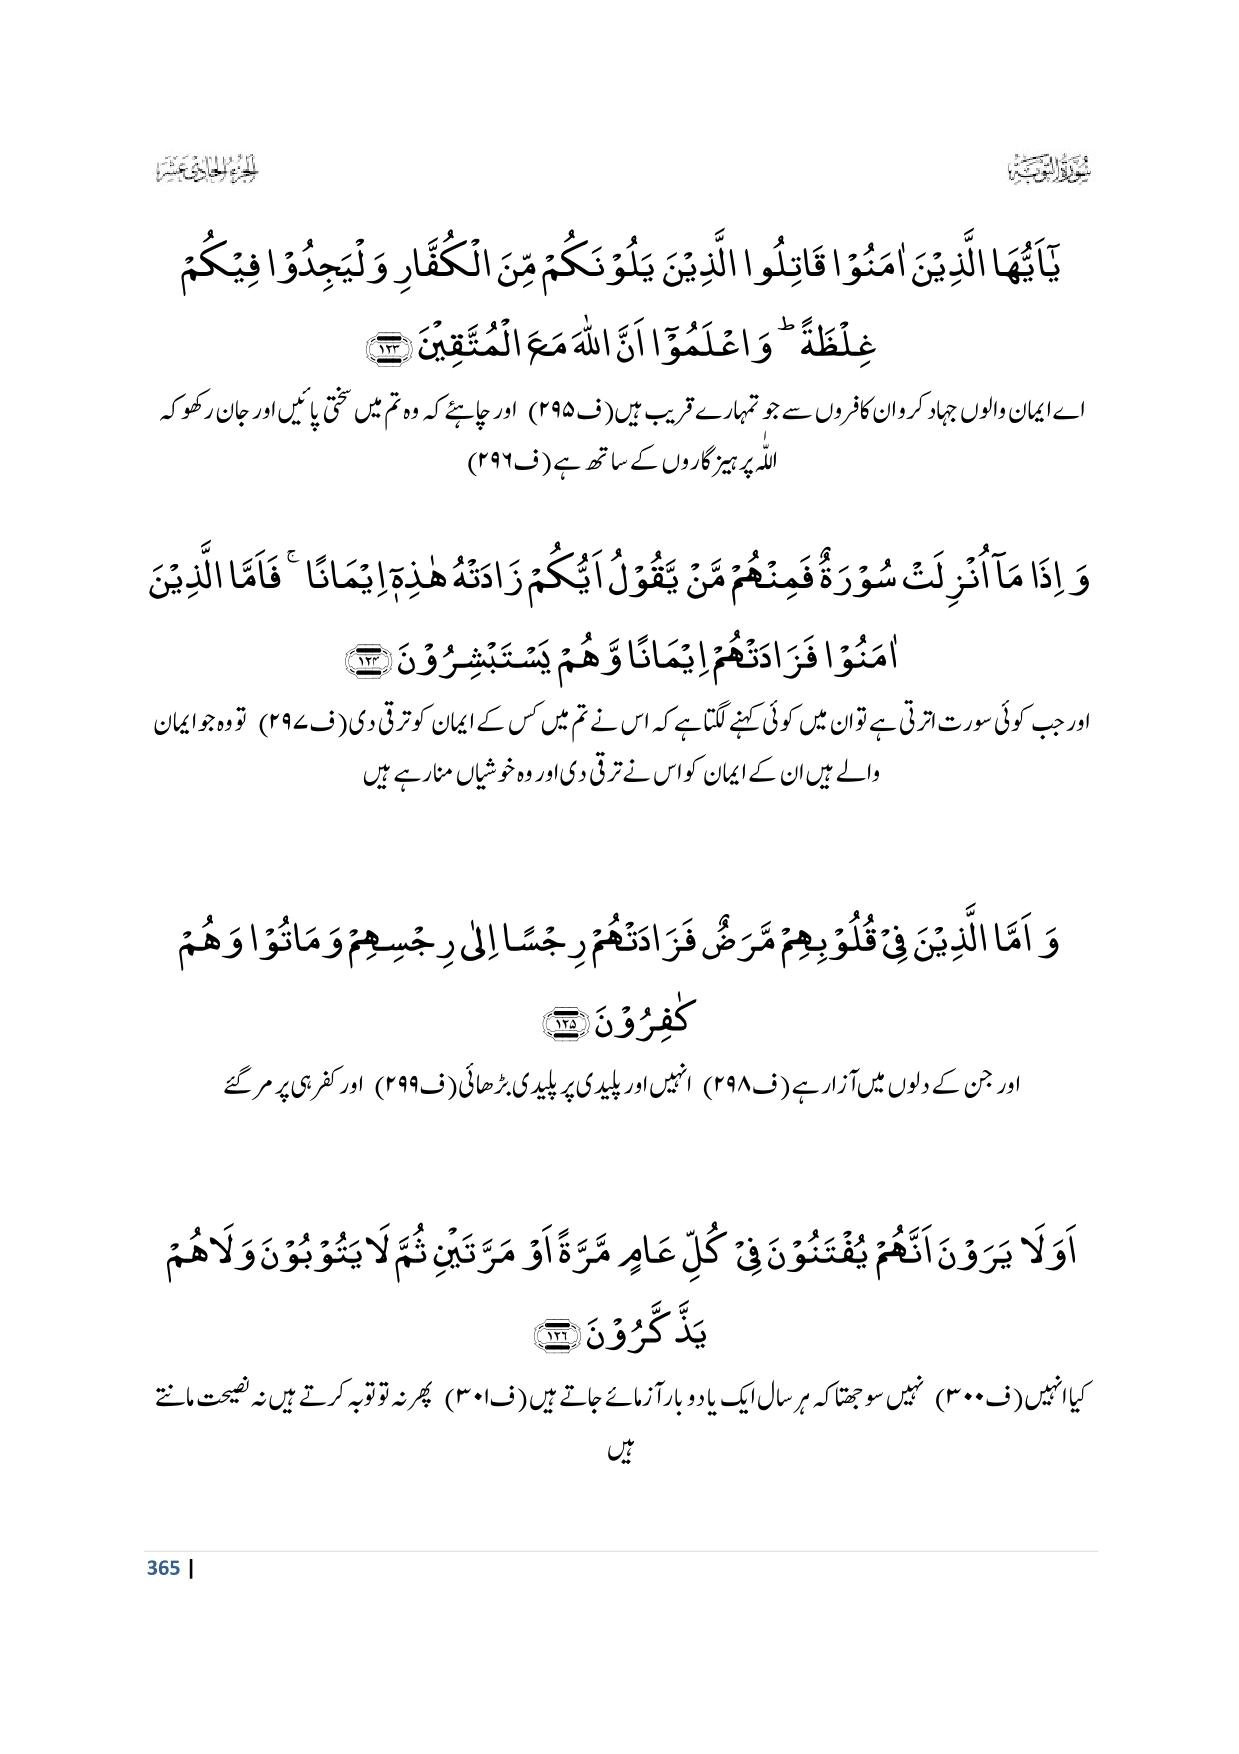 سُوْرَۃُ التَّوْبَۃِ
اَلْجُزْءُ الْحَادِیْ عَشَرَ
یٰۤاَیُّهَا الَّذِیْنَ اٰمَنُوْا قَاتِلُوا الَّذِیْنَ یَلُوْنَكُمْ مِّنَ الْكُفَّارِ وَ لْیَجِدُوْا فِیْكُمْ
غِلْظَةًؕ وَ اعْلَمُوْۤا اَنَّ اللّٰهَ مَعَ الْمُتَّقِیْنَ ﴿۱۲۳﴾
اے ایمان والوں جہاد کرو ان کافروں سے جو تمہارے قریب ہیں(ف۲۹۵) اور چاہئے کہ وہ تم میں سختی پائیں اور جان رکھو کہ
اللّٰہ پرہیزگاروں کے ساتھ ہے(ف۲۹۶)
وَ اِذَا مَاۤ اُنْزِلَتْ سُوْرَةٌ فَمِنْهُمْ مَّنْ یَّقُوْلُ اَیُّكُمْ زَادَتْهُ هٰذِهٖۤ اِیْمَانًاۚ فَاَمَّا الَّذِیْنَ
اٰمَنُوْا فَزَادَتْهُمْ اِیْمَانًا وَّ هُمْ یَسْتَبْشِرُوْنَ ﴿۱۲۴﴾
اور جب کوئی سورت اترتی ہے تو ان میں کوئی کہنے لگتا ہے کہ اس نے تم میں کس کے ایمان کو ترقی دی(ف۲۹۷) تو وہ جو ایمان
والے ہیں ان کے ایمان کو اس نے ترقی دی اور وہ خوشیاں منارہے ہیں
وَ اَمَّا الَّذِیْنَ فِیْ قُلُوْبِهِمْ مَّرَضٌ فَزَادَتْهُمْ رِجْسًا اِلٰى رِجْسِهِمْ وَ مَاتُوْا وَ هُمْ
كٰفِرُوْنَ ﴿۱۲۵﴾
اور جن کے دلوں میں آزار ہے(ف۲۹۸) انہیں اور پلیدی پر پلیدی بڑھائی(ف۲۹۹) اور کفر ہی پر مر گئے
اَوَ لَا یَرَوْنَ اَنَّهُمْ یُفْتَنُوْنَ فِیْ كُلِّ عَامٍ مَّرَّةً اَوْ مَرَّتَیْنِ ثُمَّ لَا یَتُوْبُوْنَ وَ لَا هُمْ
یَذَّكَّرُوْنَ ﴿۱۲۶﴾
کیا انہیں(ف۳۰۰) نہیں سوجھتا کہ ہر سال ایک یا دو بار آزمائے جاتے ہیں(ف۳۰۱) پھر نہ تو توبہ کرتے ہیں نہ نصیحت مانتے
ہیں
365 |